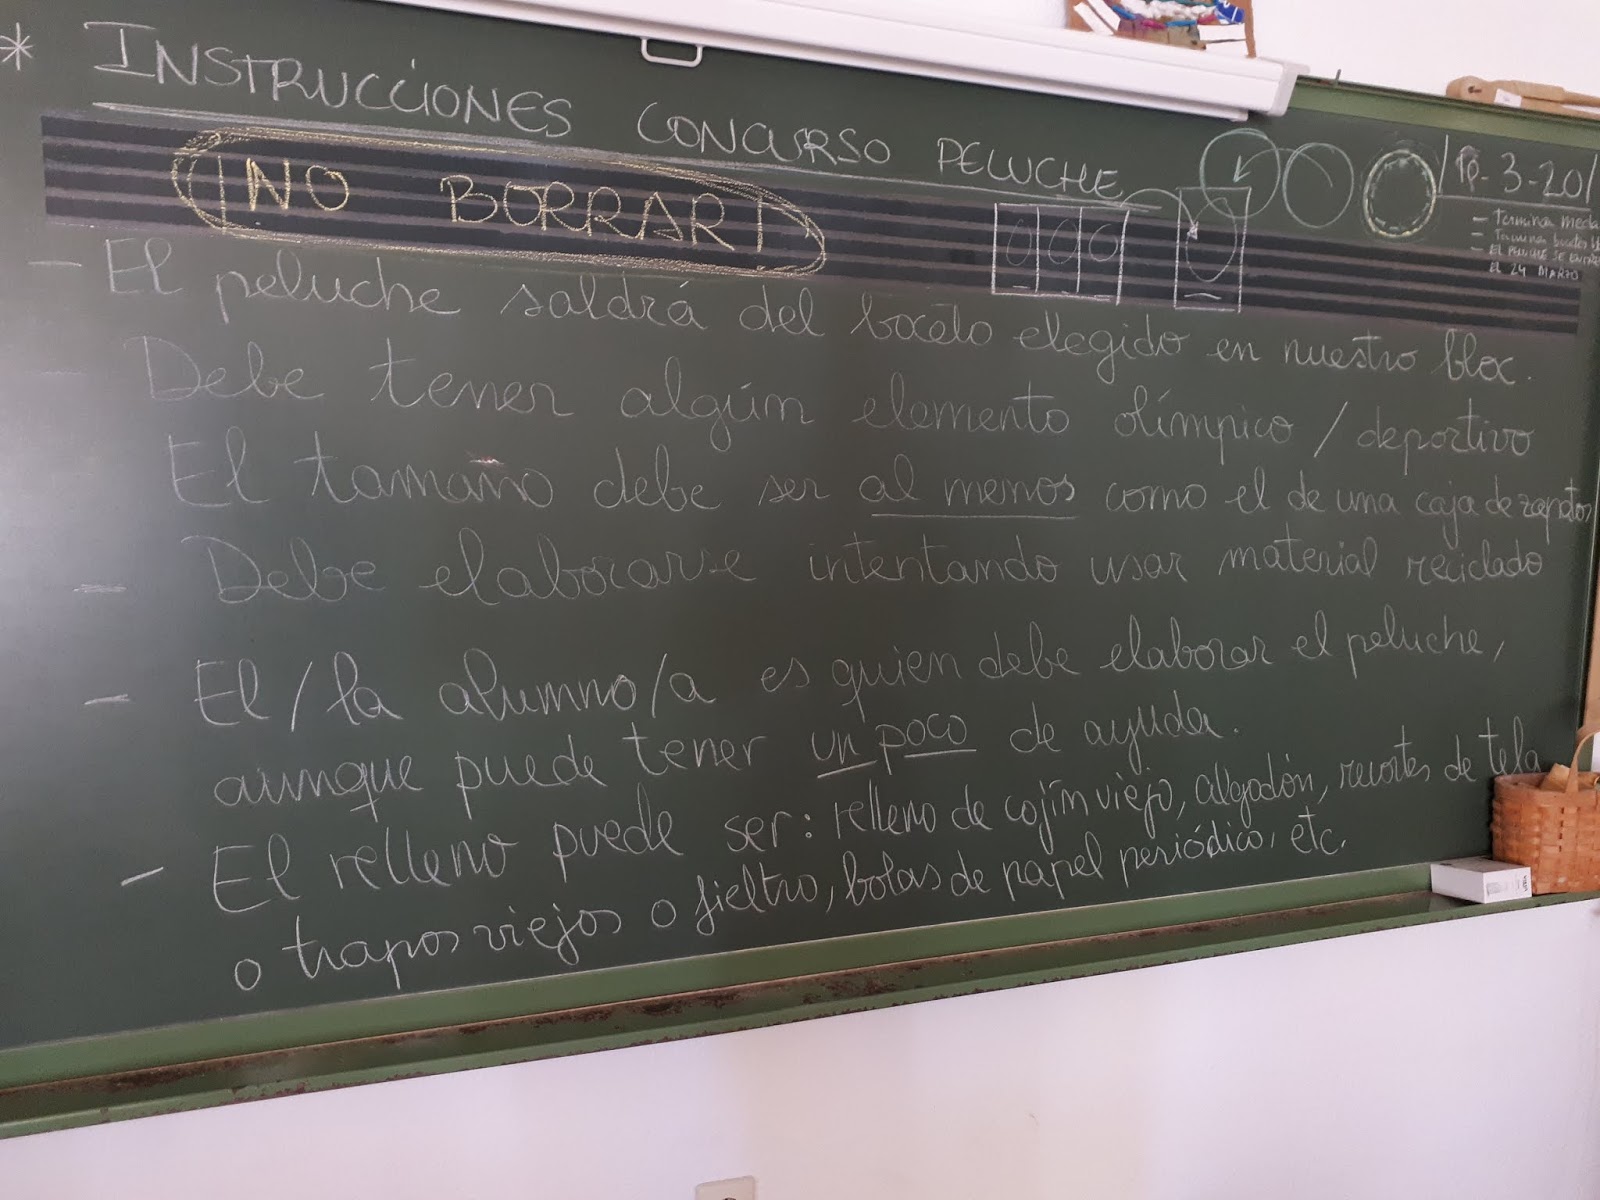 * INSTRUCCIONES CONCURSO PELUCHE
¡NO BORRAR!
- El peluche saldrá del boceto elegido en nuestro bloc.
- Debe tener algún elemento olímpico / deportivo
El tamaño debe ser al menos como el de una caja de zapatos
- Debe elaborarse intentando usar material reciclado
- El/la alumno/a es quien debe elaborar el peluche,
aunque puede tener un poco de ayuda.
- El relleno puede ser: relleno de cojín viejo, algodón, recortes de tela
o trapos viejos o fieltro, bolas de papel periódico, etc.
3-20
- Terminar
- Terminar
- EL PELUCHE SE
EL 24 MARZO